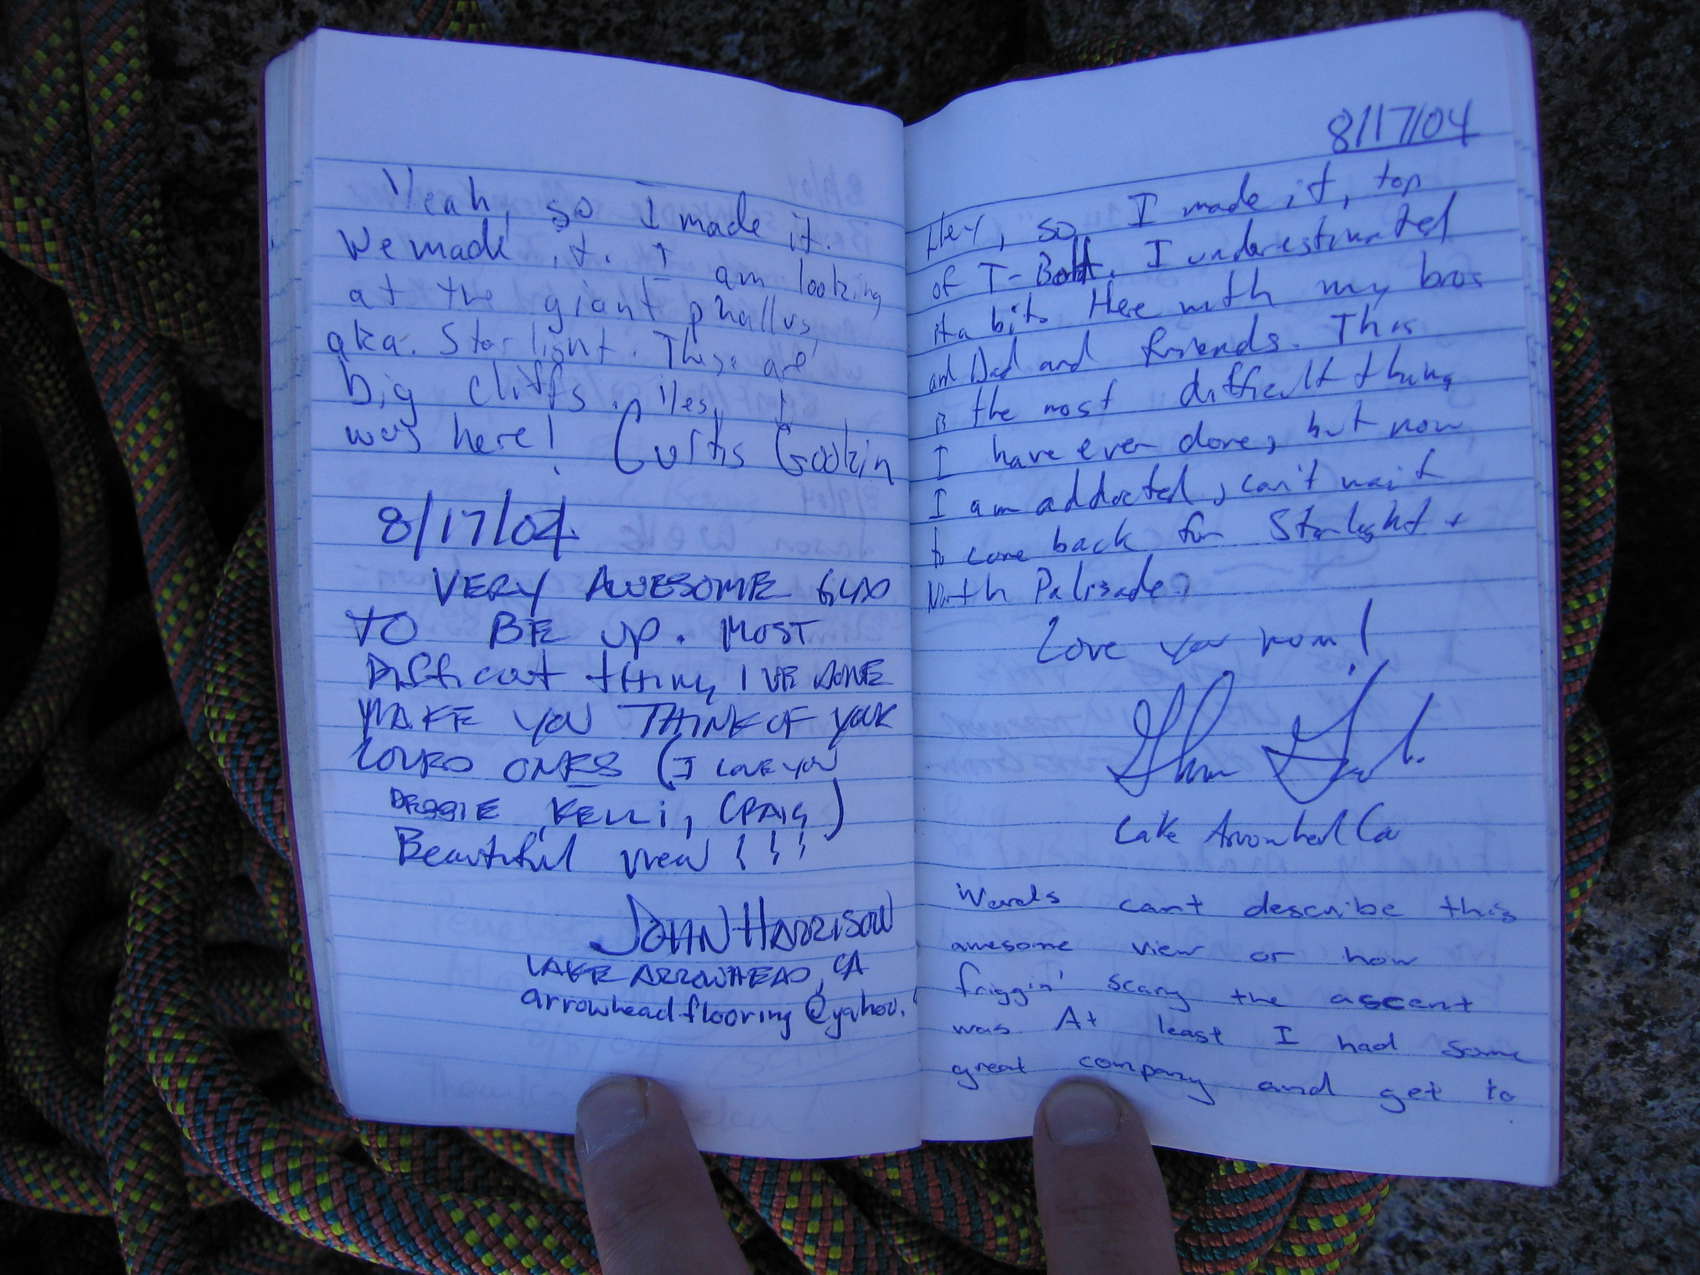 Yeah, so I made it.
We made it. I am looking
at the giant phallus,
aka. Starlight. These are
big cliffs. Yes, I
was here! Curtis Gookin
8/17/04
VERY AWESOME GLAD
TO BE UP. MOST
DIFFICULT THING I'VE DONE
MAKE YOU THINK OF YOUR
LOVED ONES (I LOVE YOU
DEGGIE, KELLI, CRAIG)
Beautiful view !!!
JOHN HARRISON
LAKE ARROWHEAD, CA
arrowheadflooring@yahoo.
8/17/04
Hey, so, I made it, top
of T-Bolt. I underestimated
it a bit. Here with my bros
and Dad and friends. This
is the most difficult thing
I have ever done, but now
I am addicted, can't wait
to come back for Starlight +
North Palisade.
Love you mom!
Lake Arrowhead Ca
Words cant describe this
awesome view or how
friggin' scary the ascent
was At least I had some
great company and get to